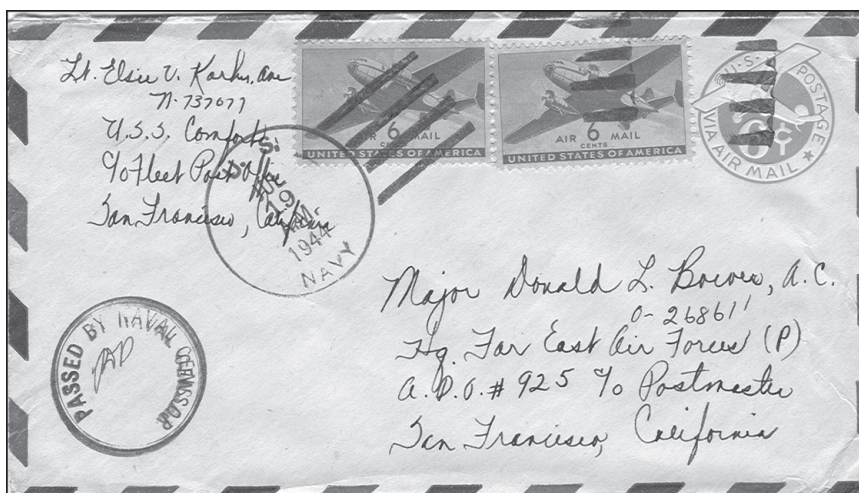 Lt. Elsie V. Karhu, ANC
N-737677
U.S.S. Comfort
c/o Fleet Post Office
San Francisco, California
AIR 6 MAIL
CENTS
UNITED STATES OF AMERICA
AIR 6 MAIL
CENTS
UNITED STATES OF AMERICA
U.S. POSTAGE
6¢
VIA AIR MAIL
U.S.
19
AM
1944
NAVY
Major Donald L. Bower, A.C.
O-268611
Hq. Far East Air Forces (P)
A.P.O. # 925 c/o Postmaster
San Francisco, California
PASSED BY NAVAL CENSOR